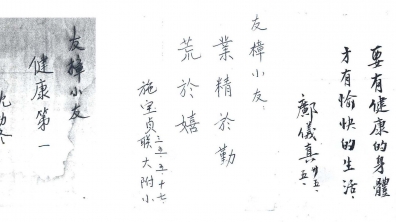 要有健康的身體
才有愉快的生活
鄺儀真 廿五、五、
友樟小友：
業精於勤
荒於嬉
施宝貞 三五、五、十七
联大附小
友樟小友
健康第一